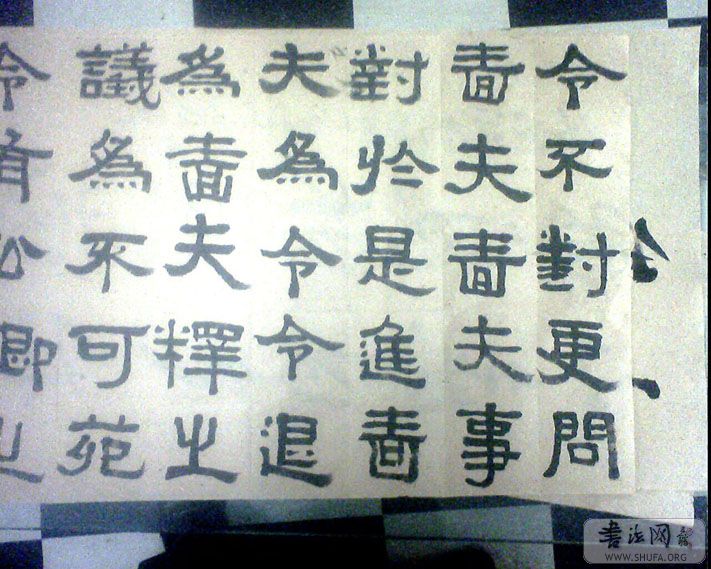 令不對更問
嗇夫嗇夫事
對於是進嗇
夫為令令退
為嗇夫釋之
議為不可苑
令有公卿之
書法网
WWW.SHUFA.ORG